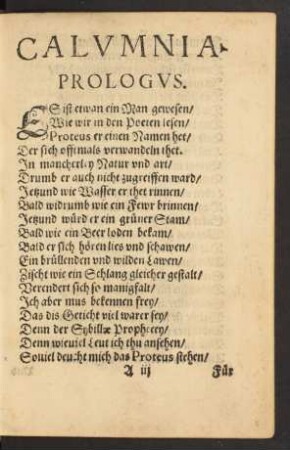 CALVMNIA
PROLOGVS.
ES ist etwan ein Man gewesen/
Wie wir in den Poeten lesen/
Proteus er einen Namen het/
Der sich offtmals verwandeln thet.
In mancherley Natur vnd art/
Drumb er auch nicht zugreiffen ward/
Jetzund wie Wasser er thet rinnen/
Bald widrumb wie ein Fewr brinnen/
Jetzund würd er ein grüner Stam/
Bald wie ein Beer loden bekam/
Bald er sich hören lies vnd schawen/
Ein brüllenden vnd wilden Lawen/
Zischt wie ein Schlang gleicher gestalt/
Verendert sich so manigfalt/
Ich aber mus bekennen frey/
Das dis Geticht viel warer sey/
Denn der Sybillæ Prophecey/
Denn wieviel Leut ich thu ansehen/
Soviel deucht mich das Proteus stehen/
A iij Für